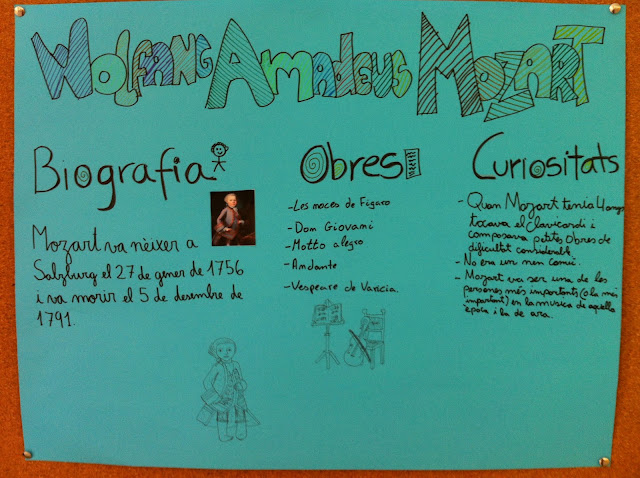 Wolfgang Amadeus Mozart
Biografia
Mozart va nèixer a
Salzburg el 27 de gener de 1756
i va morir el 5 de desembre de
1791.
Obres
- Les noces de Figaro
- Dom Giovami
- Motto alegro
- Amdante
- Vespeare de
Curiositats
- Quan Mozart tenia 4 anys
tocava el Clavicordi i
composava petites Obres de
dificultat considerable.
- No era un nen comú.
- Mozart va ser una de les
persones més importants (o la més
important) en la musica de aquella
època i la de ara.